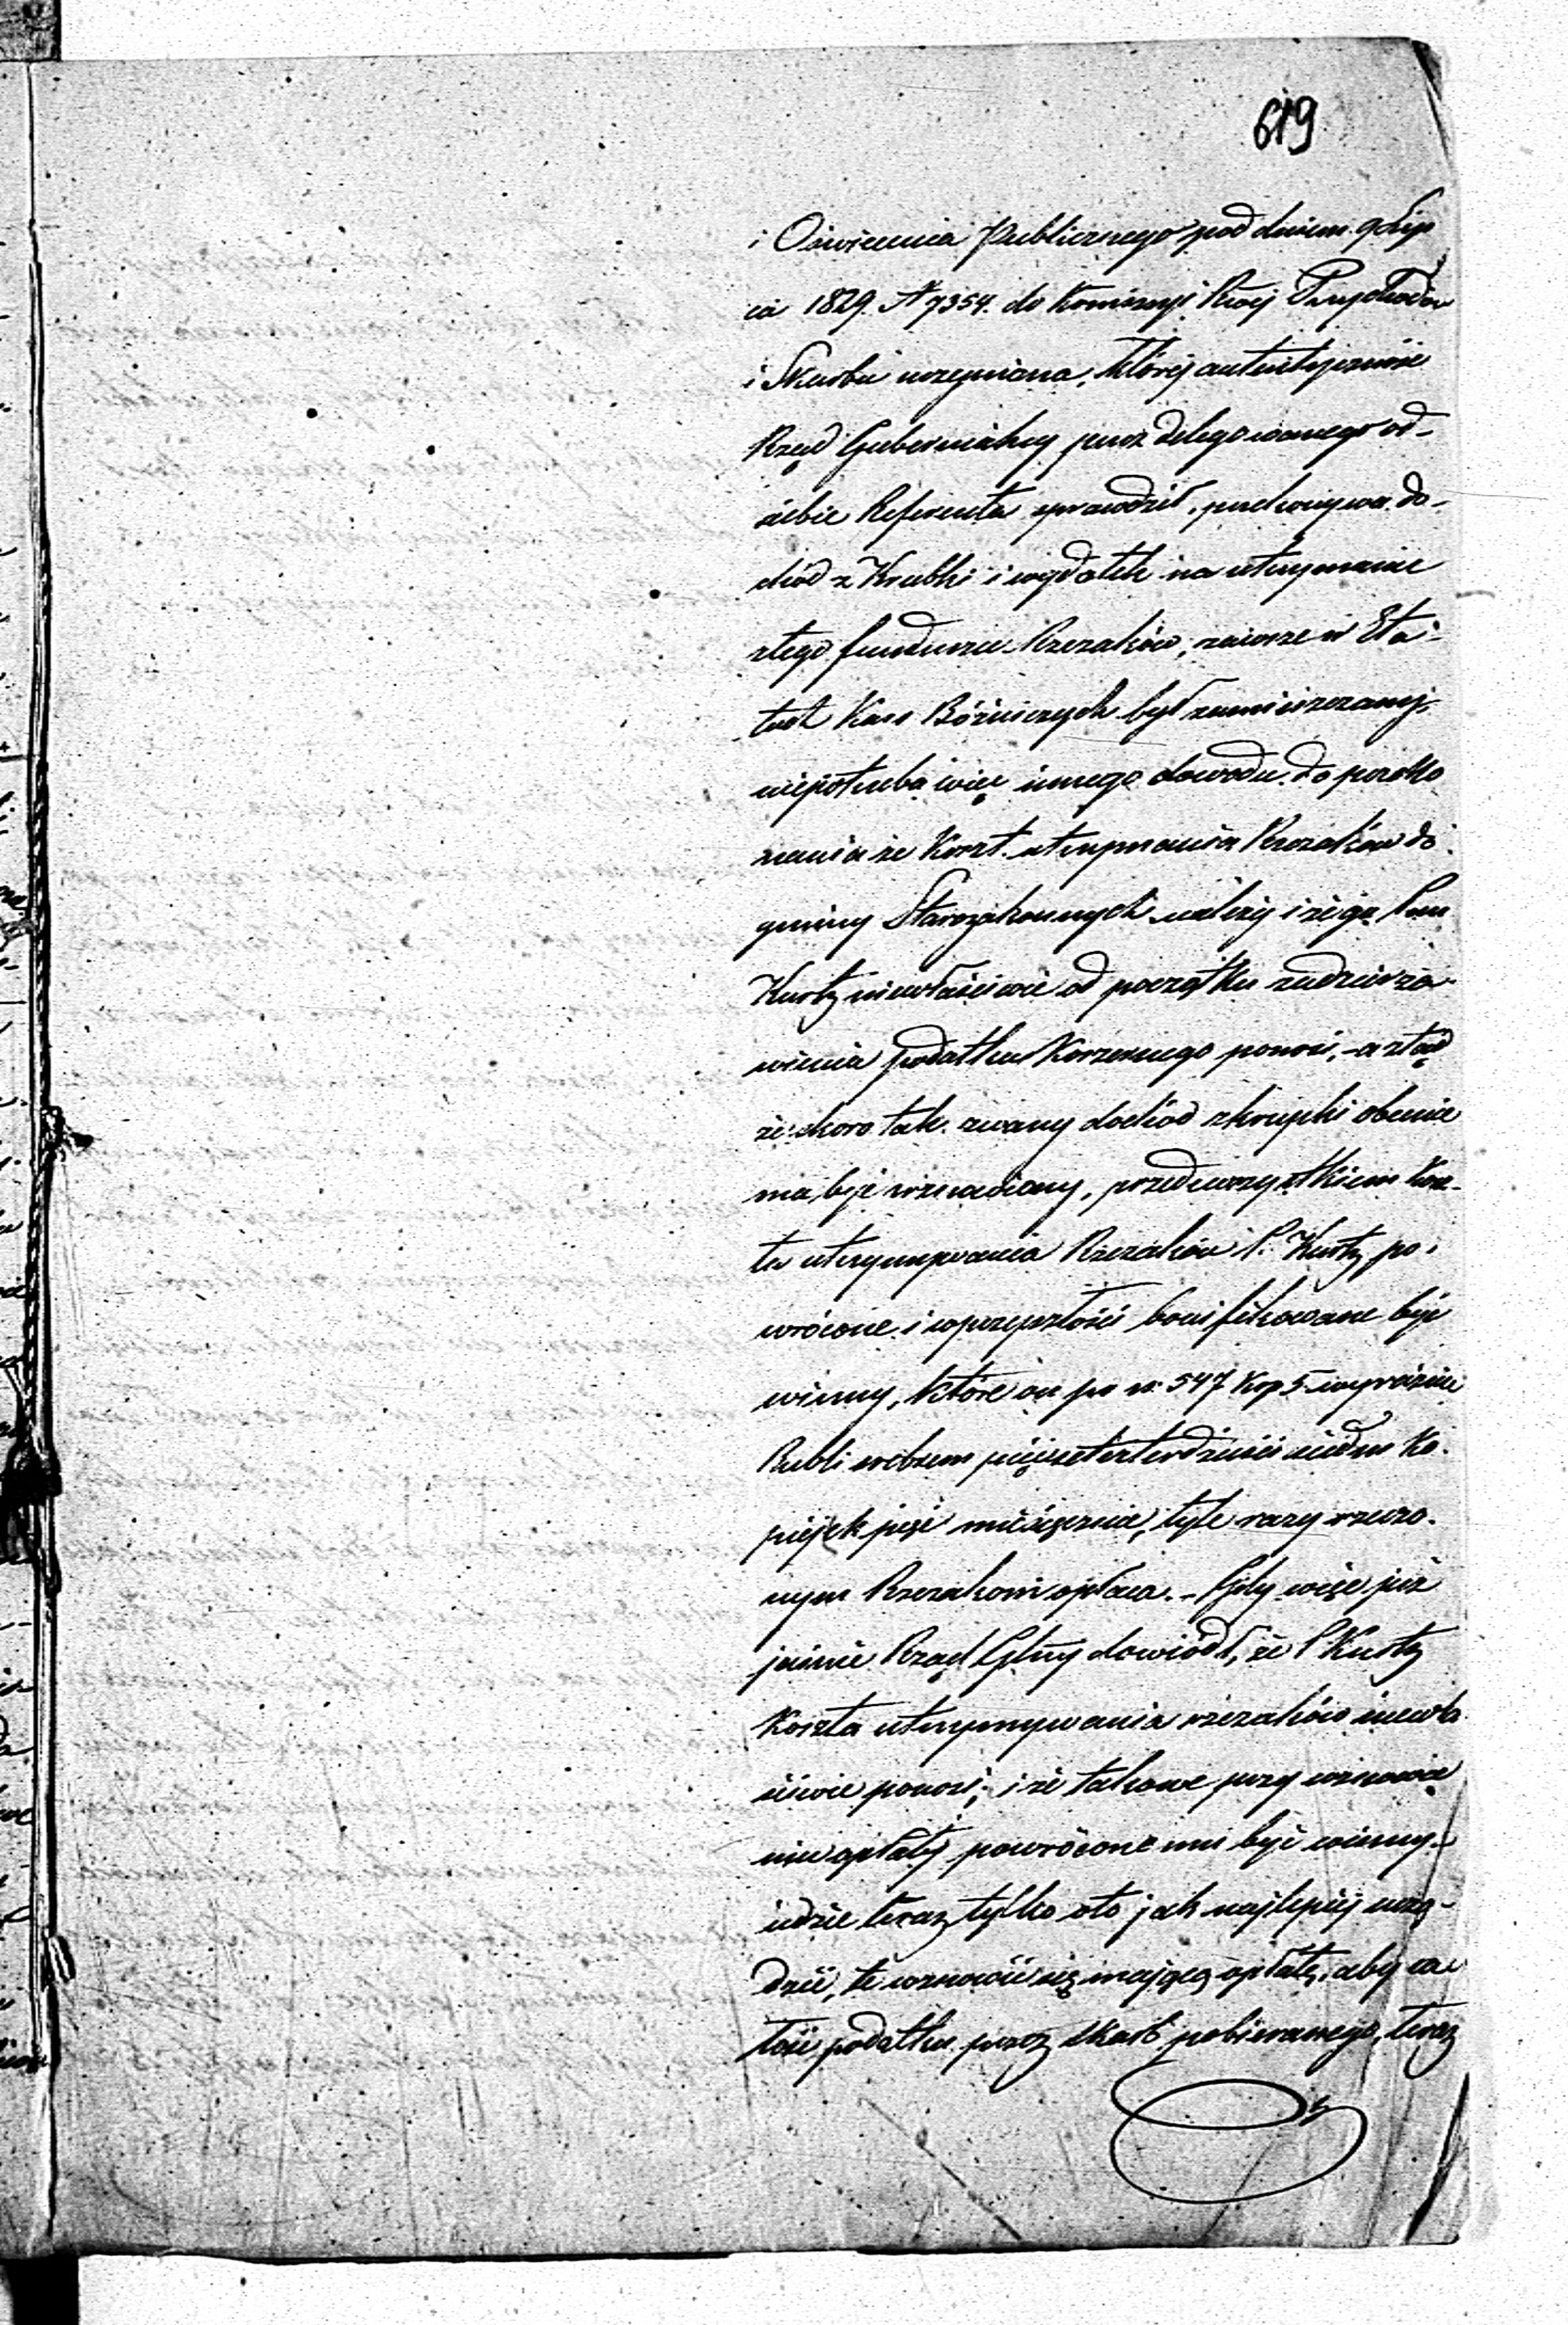 619
i Oświecenia Publicznego pod dniem 9 Lip
ca 1829. N 7354. do Kommissyi Rząj Przychodów
i Skarbu uczyniona, której autentyczność
Rząd Gubernialny przez delegowanego od-
siebie Referenta sprawdził, przekonywa do-
chód z Krubki i wydatek na utrzymanie
ztego funduszu Rzezaków, zawsze w Eta-
tach Kass Bóżniczych był zamieszczany,
niepotrzeba więc innego dowodu do przeko
nania że Koszt utrzymania Rzezaków do
gminy Starozakonnych należy i że go Pan
Kurtz niewłaściwie od początku zadzierża-
wienia podatku Koszernego ponosi, a ztąd
że skoro tak zwany dochód z krupki obecnie
ma być wznawiany, przedewszystkiem Kosz-
ta utrzymywania Rzezaków P. Kurtz po-
wrócone i w przyszłości bonifikowane być
winny, które on po rs. 547 kop 5 wyraźnie
Rubli srebrem pięćset czterdzieści siedm Ko-
piejek pięć miesięcznie, tyle razy rzeczo-
nym Rzezakom opłaca. - Gdy więc już
jaśnie Rząd Glny dowiódł, że P Kurtz
Koszta utrzymywania rzezaków niewła
ściwie ponosi; i że takowe przy wznowie
niu opłaty powrócone mu być winny.
idzie teraz tylko oto jak najlepiej urzą-
dzić, tę wznowić się mającą opłatę, aby ca
łość podatku przez skarb pobieranego, teraz